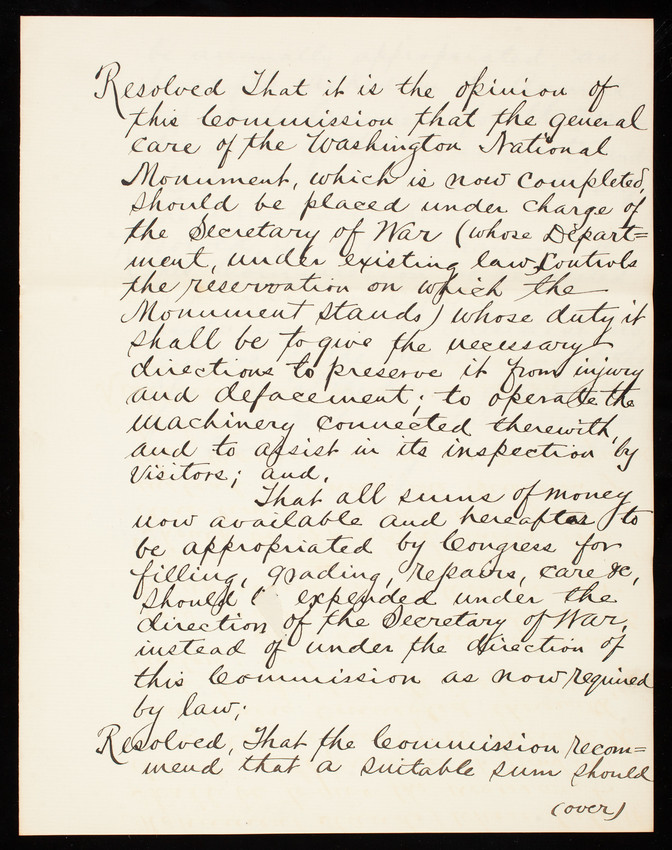 Resolved That it is the opinion of
this Commission that the general
care of the Washington National
Monument, which is now completed,
should be placed under charge of
the Secretary of War (whose Depart=
ment, under existing law, controls
the reservation on which the
Monument stands) whose duty it
shall be to give the necessary
directions to preserve it from injury
and defacement; to operate the
machinery connected therewith,
and to assist in its inspection by
visitors; and.
That all sums of money
now available and hereafter to
be appropriated by Congress for
filling, grading, repairs, care &c,
should expended under the
direction of the Secretary of War,
instead of under the direction of
this Commission as now required
by law;
Resolved, That the Commission recom=
mend that a suitable sum should
(over)